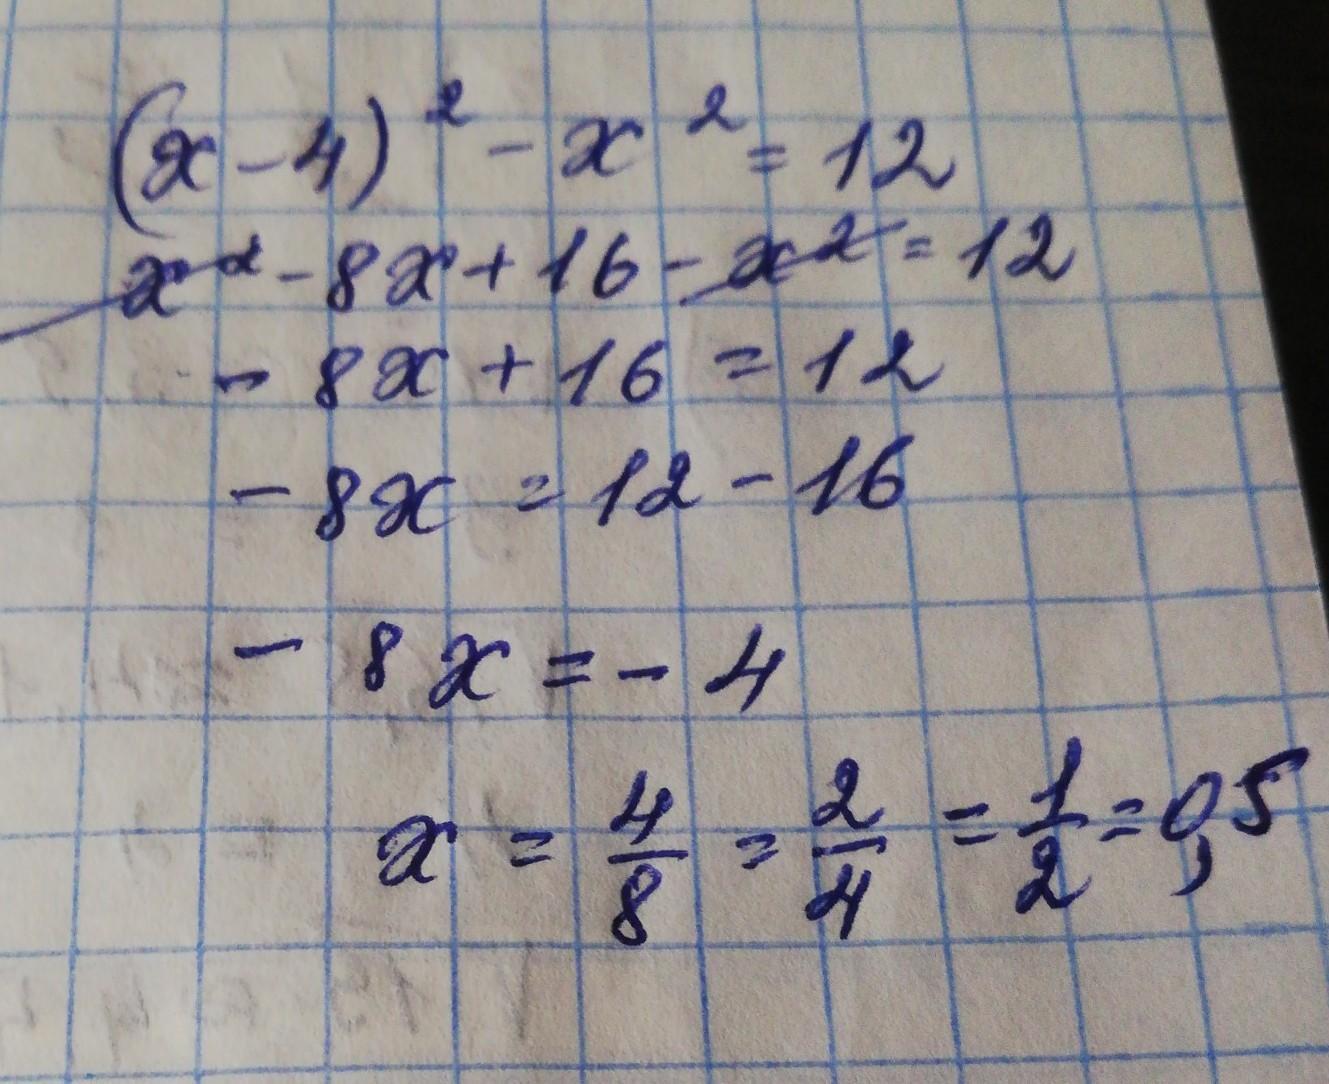 (x-4)² - x² = 12
x² - 8x + 16 - x² = 12
- 8x + 16 = 12
- 8x = 12 - 16
- 8x = - 4
x = 4/8 = 2/4 = 1/2 = 0,5